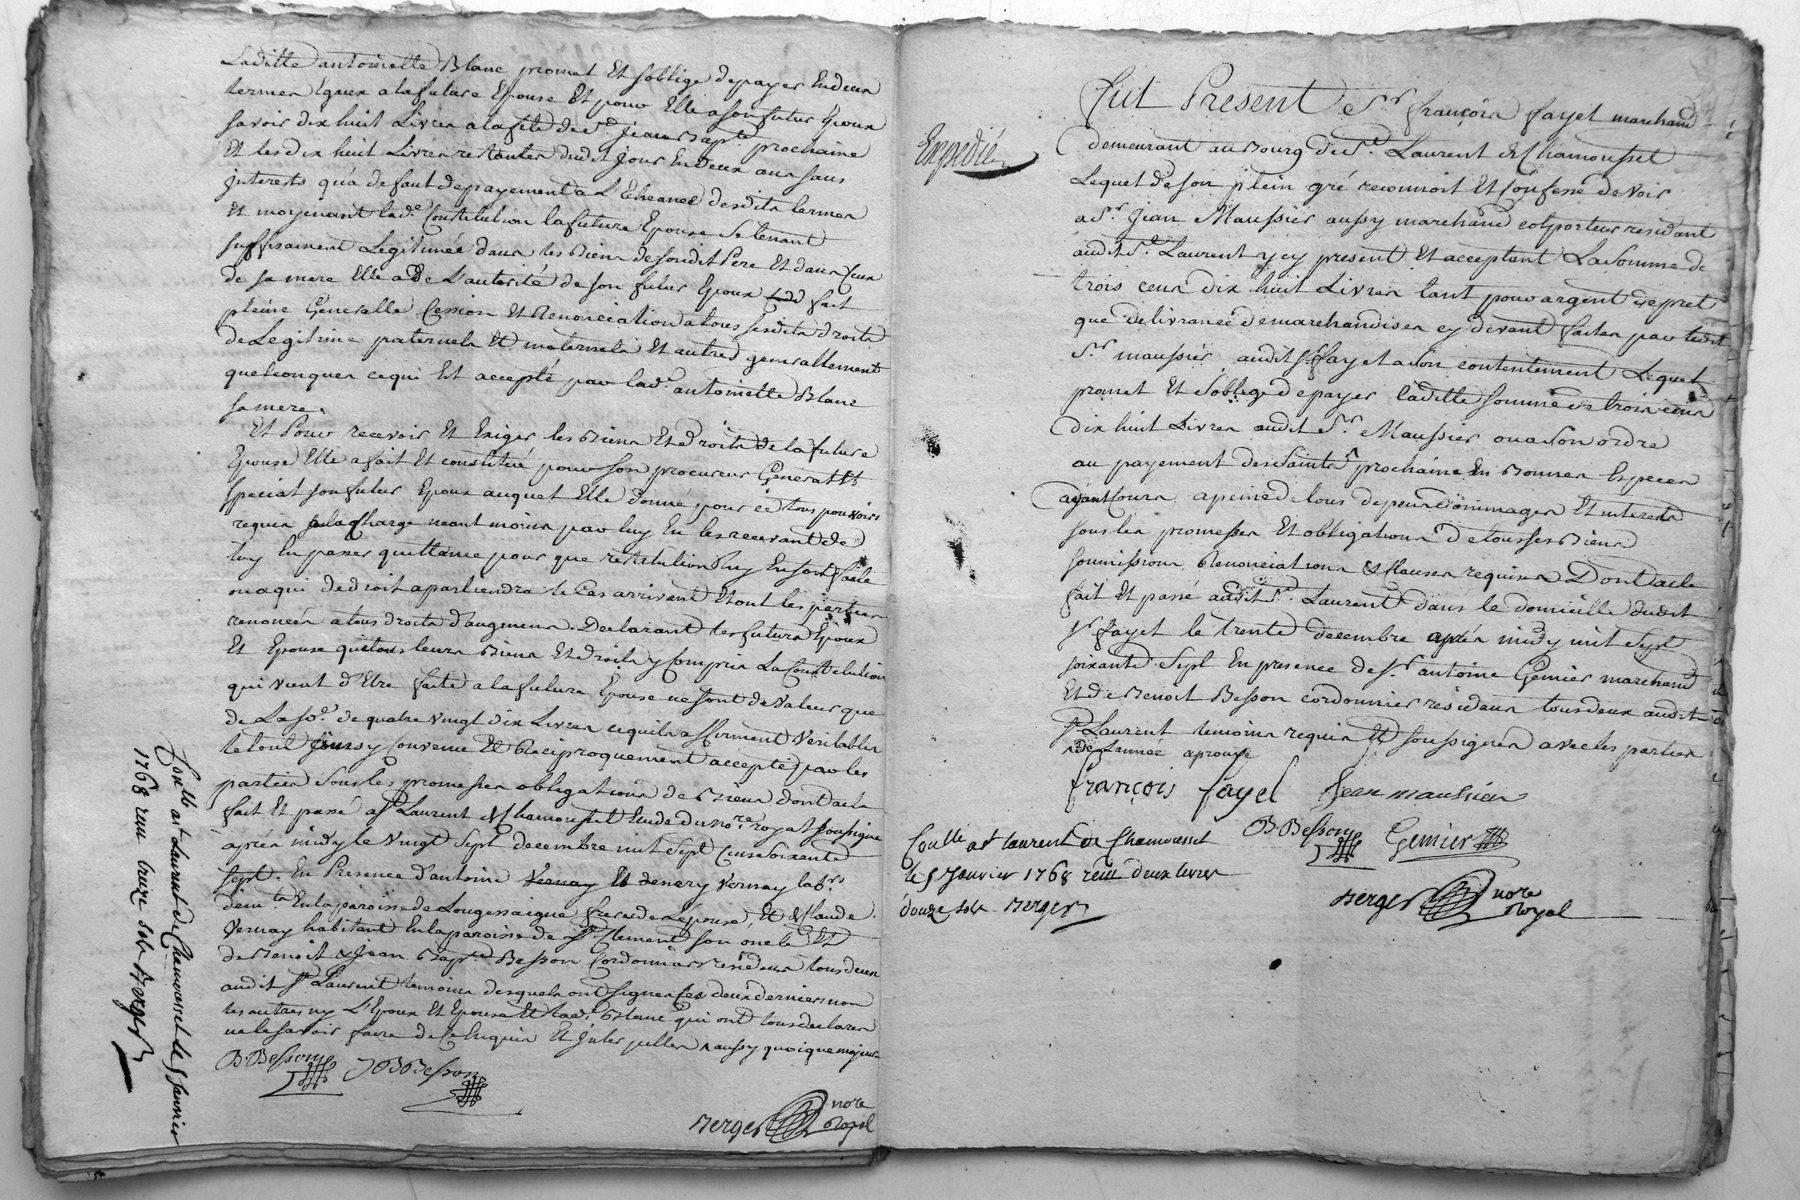 Laditte antoinette Blanc promet Et soblige depayer Endeux
termes Egaux alafuture Epouse Et pour Elle asonfutur Epoux
savoir dix huit Livres alafête de St. jean Bapte. prochaine
Et les dix huit Livres restantes dudit jour En deux ans sans
interests qu'a defaut depayement a L'Eheance desdits termes
Et moyenant lade. Constitution lafuture Epouse Se tenant
suffisament Legitimée dans les Biens desondit Pere Et dans ceux
de sa mere Elle a De L'autorité de son futur Epoux fait
pleine Generalle Cession Et Renonciation atous sesdits droits
de Legitime paternels Et maternels Et autres generallement
quelconques cequi Est accepté par lade. antoinette Blanc
sa mere.
Et Pour recevoir Et Exiger les Biens Et droits de la future
Epouse Elle afait Et constitué pour son procureur General Et
special son futur Epoux auquel Elle donne pour ce tous pouvoirs
requis ala Charge neant moins par luy En les recevant de
luy En passer quittance pour que restitution luy En soit faite
ou aqui de droit apartiendra le Cas arrivant Et ont les parties
renoncés atous droits d'augmens. Declarant les futurs Epoux
Et Epouse que tous leurs Biens Et droits y Compris La Constitution
qui vient d'Etre faite a la future Epouse ne sont de valeur que
de La so.e de quatre vingt dix Livres cequils afferment veritables
le tout ainsy Convenu Et Reciproquement accepté par les
parties Sous les promesses obligations de Biens Dont acte
fait Et passé a St. Laurent de Chamousset Etude du no.re royal soussigné
après midy le vingt Sept decembre mil Sept Cens Soixante
Sept. En Presence d'antoine Vernay Labr.
demt. En la paroisse de Longessaigne frere de Lepouse, Et Claude
Vernay habitant En la paroisse de St. Clement son oncle Et
de Benoit & Jean Bapte. Besson Cordonniers residens tous deux
audit St. Laurent temoins desquels ont signer Ces deux derniers non
les autres ny L'Epoux Et Epouse Et lade. Blanc qui ont tous declarer
ne le Savoir faire de Ce Enquis Et Interpellés aussy quoique majeurs
B Besson J B Besson
Berger no.re Royal
Conlle. a st Laurent de Chamousset le 5 Janvier
1768 recu treize sols Berger
Expedié
Fut Present Sr. françois fayet marchand
demeurant au Bourg de St. Laurent de Chamousset
Lequel de son plein gré reconnoit Et Confesse devoir
a Sr. Jean Maussier aussy marchand colporteur residant
audit St. Laurent y cy present Et acceptant La Somme de
trois cens dix huit Livres tant pour argent de pret
que delivrance de marchandises cy devant faites par ledit
Sr. maussier audit Sr fayet a Son contentement Lequel
promet Et S'oblige depayer laditte somme de trois cens
Dix huit Livres audit Sr. Maussier ou a Son ordre
au payement des Saints prochains En Bonnes Especes
ayant Cours a peine de tous depens dommages Et interests
sous les promesses Et obligations De tous ses Biens
soumissions Renonciations & Clauses requises Dont acte
fait Et passé audit St. Laurent dans le domicille dudit
Sr fayet le trente decembre après midy mil Sept
soixante Sept En presence de Sr. antoine Genier marchand
Et de Benoit Besson cordonnier residens tous deux audit
St. Laurent temoins requis Et soussignés avec les parties
de Lannee aprouve
françois fayet Jean maussier
B Besson Genier
Conlle. a st Laurent de Chamousset
le 5 Janvier 1768 recu deux livres
douze sols Berger
Berger no.re Royal